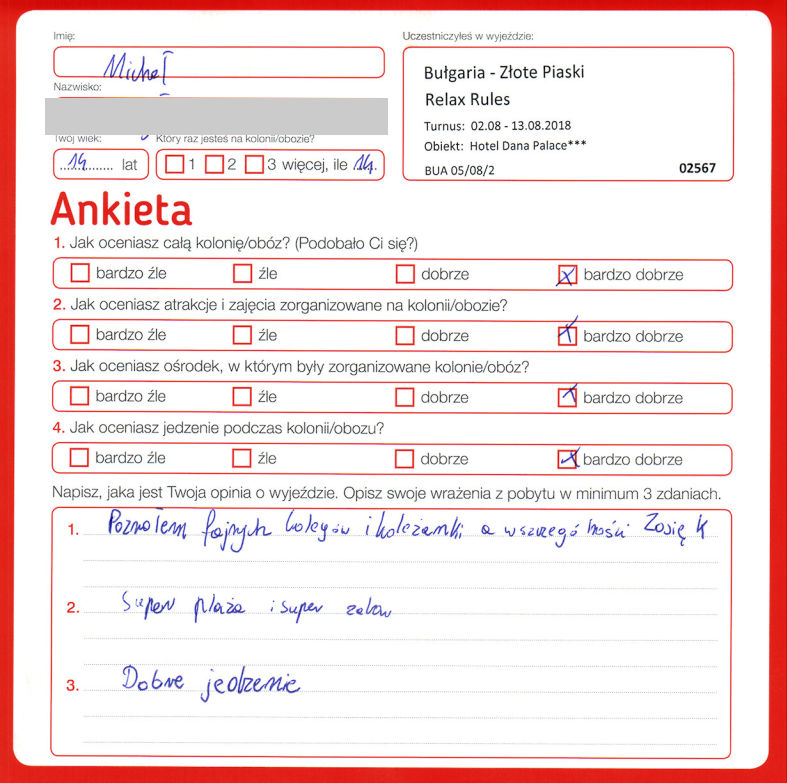 Imię:
Uczestniczyłeś w wyjeździe:
Michał
Nazwisko:
Bułgaria - Złote Piaski
Relax Rules
Turnus: 02.08 - 13.08.2018
Obiekt: Hotel Dana Palace***
BUA 05/08/2
02567
Twój wiek:
Który raz jesteś na kolonii/obozie?
14 lat
1 2 3 więcej, ile 14.
Ankieta
1. Jak oceniasz całą kolonię/obóz? (Podobało Ci się?)
bardzo źle źle dobrze x bardzo dobrze
2. Jak oceniasz atrakcje i zajęcia zorganizowane na kolonii/obozie?
bardzo źle źle dobrze x bardzo dobrze
3. Jak oceniasz ośrodek, w którym były zorganizowane kolonie/obóz?
bardzo źle źle dobrze x bardzo dobrze
4. Jak oceniasz jedzenie podczas kolonii/obozu?
bardzo źle źle dobrze x bardzo dobrze
Napisz, jaka jest Twoja opinia o wyjeździe. Opisz swoje wrażenia z pobytu w minimum 3 zdaniach.
1. Poznałem fajnych kolegów i koleżamki a wszczegó lności Zosię K
2. Super plaża i super
3. Dobre jedzenie